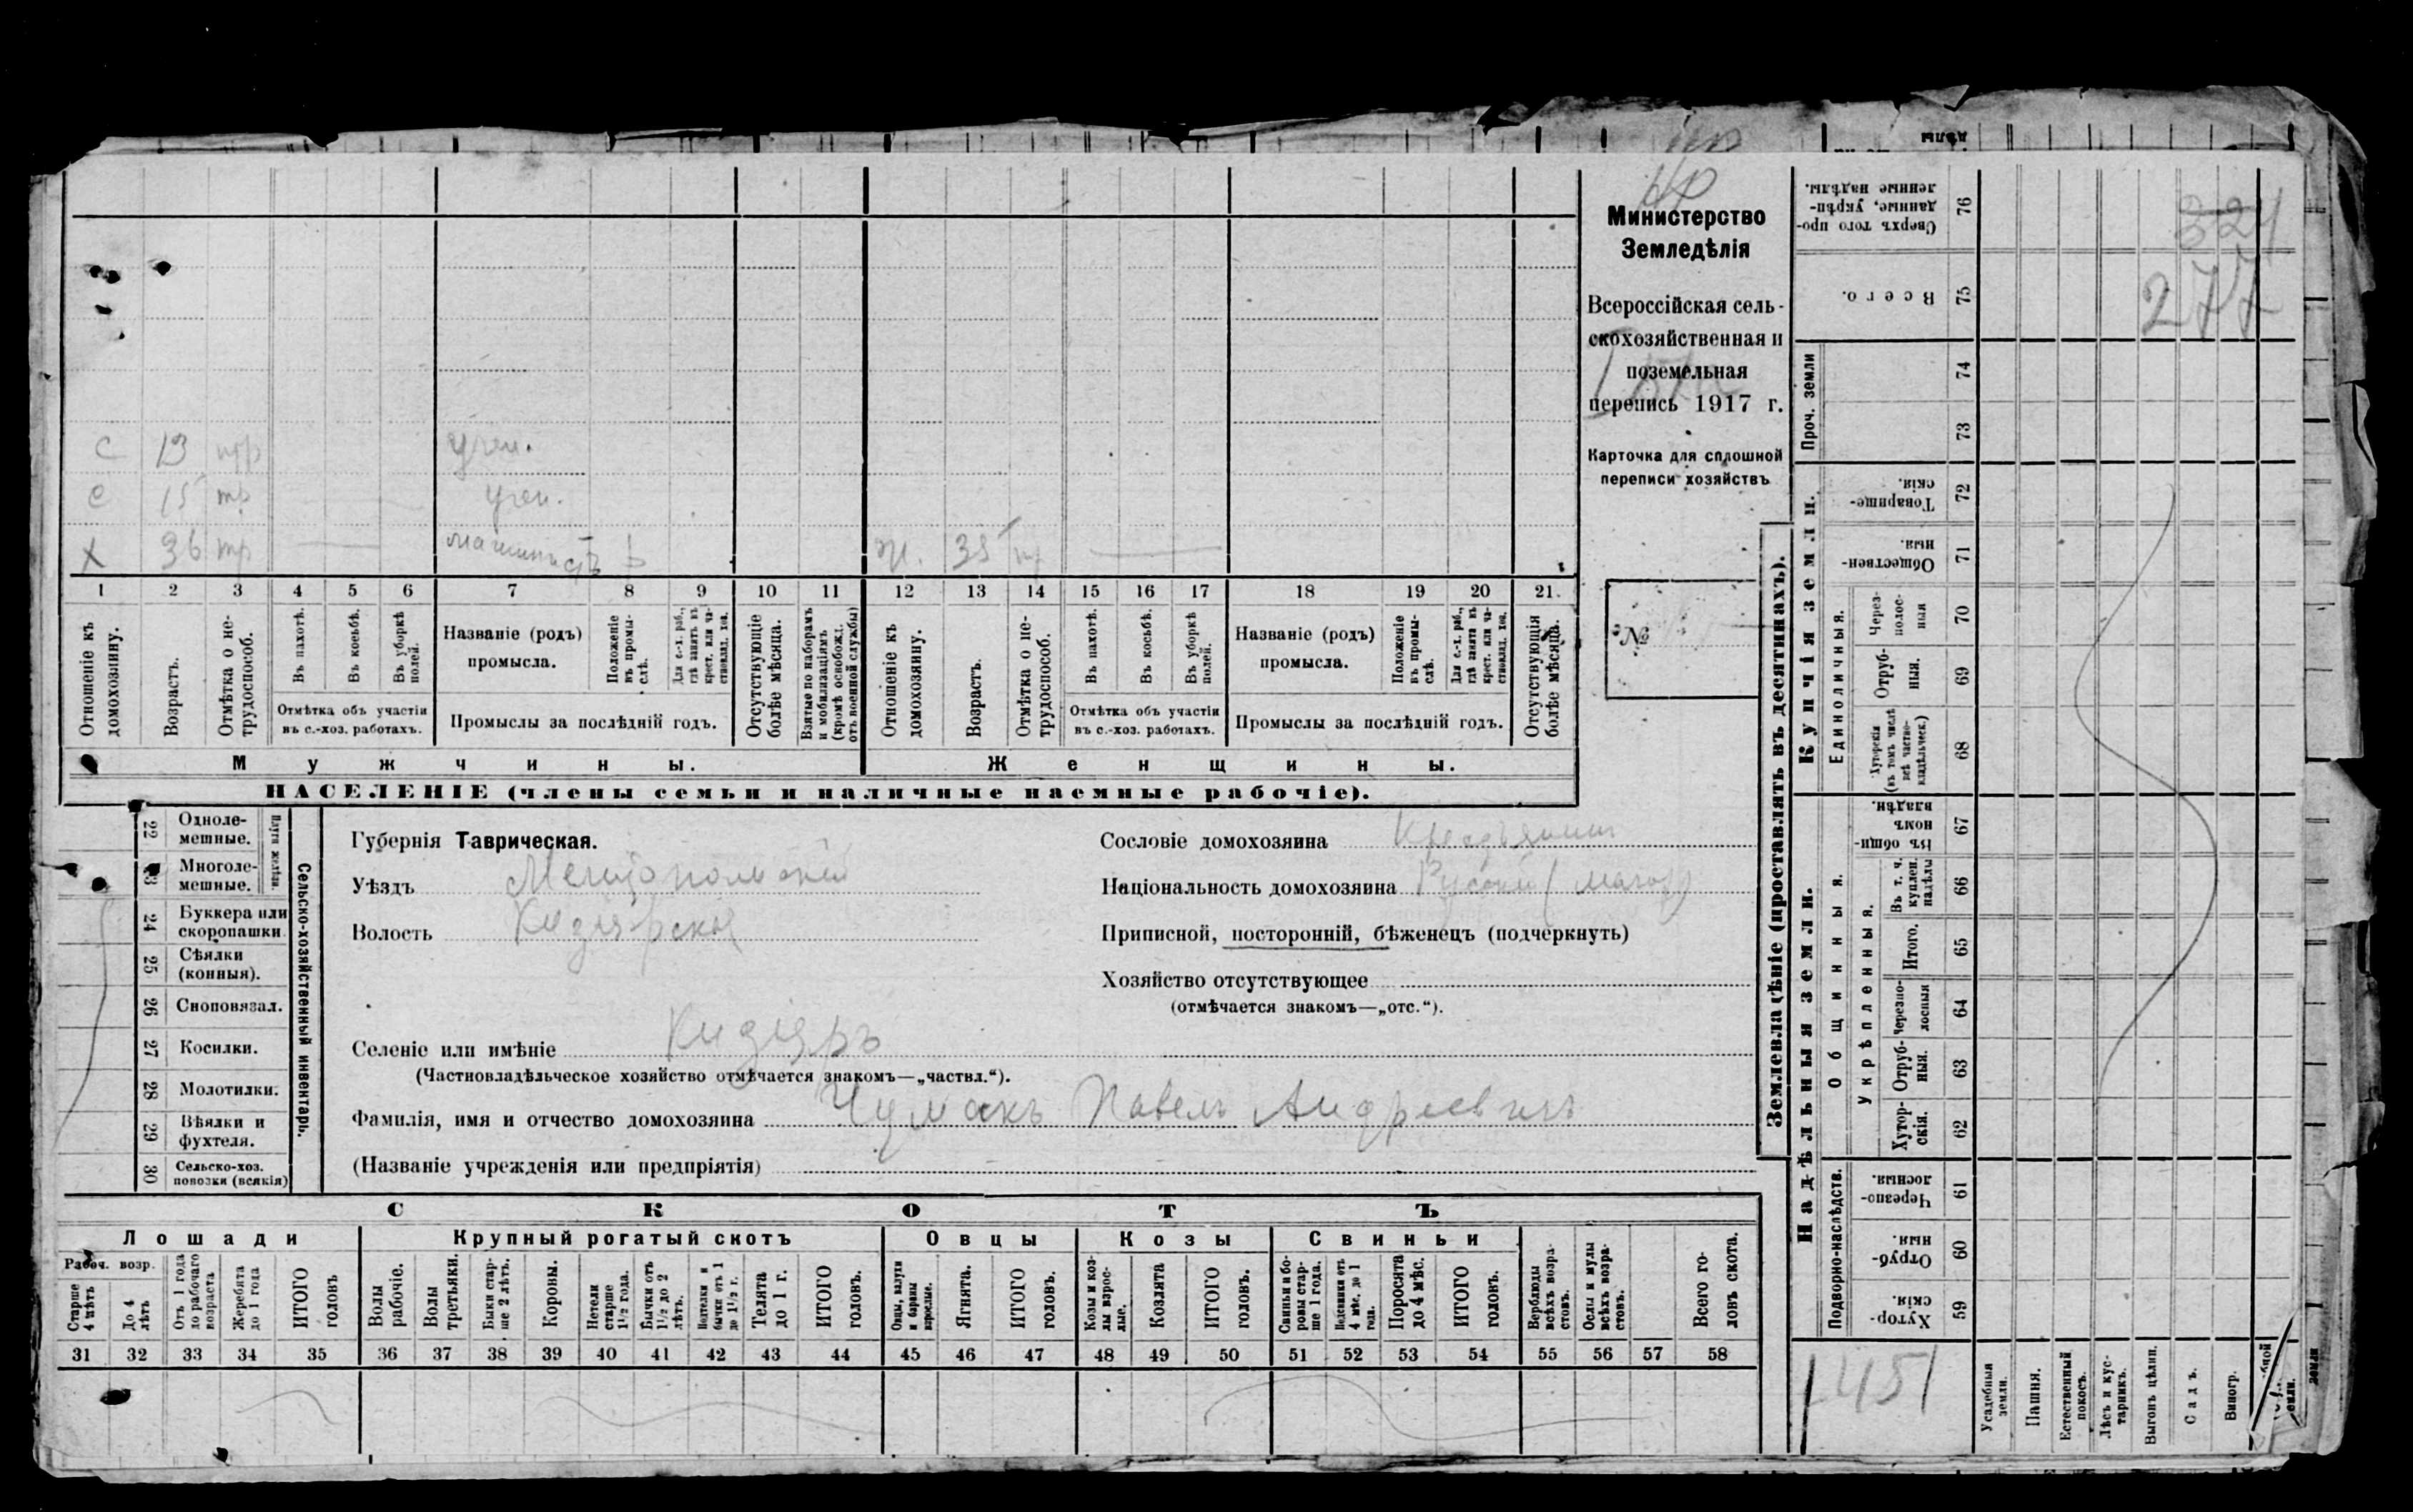 Министерство
Земледѣлія
Всероссійская сель-
скохозяйственная и
поземельная
перепись 1917 г.
Карточка для сплошной
переписи хозяйствъ
№
с 13 учен.
с 15 тр учен.
х 36 тр машинистъ ж. 35
1 2 3 4 5 6 7 8 9 10 11 12 13 14 15 16 17 18 19 20 21.
Отношеніе къ домохозяину.
Возрастъ.
Отмѣтка о не-трудоспособ.
Въ пахотѣ.
Въ косьбѣ.
Въ уборкѣ полей.
Отмѣтка объ участіи
въ с.-хоз. работахъ.
Названіе (родъ)
промысла.
Положеніе въ промы-слѣ.
Для с.-х. раб., гдѣ занятъ въ крест. или ча-стновлад. хоз.
Промыслы за послѣдній годъ.
Отсутствующіе болѣе мѣсяца.
Взятые по наборамъ и мобилизаціямъ (кромѣ освобожд. отъ военной службы)
Отношеніе къ домохозяину.
Возрастъ.
Отмѣтка о не-трудоспособ.
Въ пахотѣ.
Въ косьбѣ.
Въ уборкѣ полей.
Отмѣтка объ участіи
въ с.-хоз. работахъ.
Названіе (родъ)
промысла.
Положеніе въ промы-слѣ.
Для с.-х. раб., гдѣ занята въ крест. или ча-стновлад. хоз.
Промыслы за послѣдній годъ.
Отсутствующія болѣе мѣсяца.
Мужчины. Женщины.
НАСЕЛЕНІЕ (члены семьи и наличные наемные рабочіе).
Сельско-хозяйственный инвентарь.
Плуги желѣзн.
22 Одноле-мешные.
23 Многоле-мешные.
24 Буккера или скоропашки
25 Сѣялки (конныя).
26 Сноповязал.
27 Косилки.
28 Молотилки.
29 Вѣялки и фухтеля.
30 Сельско-хоз. повозки (всякія)
Губернія Таврическая.
Уѣздъ Мелитопольскій
Волость Кизіярская
Селеніе или имѣніе Кизіяръ
(Частновладѣльческое хозяйство отмѣчается знакомъ—„частвл.“).
Фамилія, имя и отчество домохозяина Чумакъ Павелъ Андреевичъ
(Названіе учрежденія или предпріятія)
Сословіе домохозяина Крестьянинъ
Національность домохозяина Русскій (малор)
Приписной, посторонній, бѣженецъ (подчеркнуть)
Хозяйство отсутствующее
(отмѣчается знакомъ—„отс.“).
СКОТЪ
Лошади Крупный рогатый скотъ Овцы Козы Свиньи
Рабоч. возр.
Старше 4 лѣтъ
До 4 лѣтъ
Отъ 1 года до рабочаго возраста
Жеребята до 1 года
ИТОГО головъ
Волы рабочіе.
Волы третьяки.
Быки стар-ше 2 лѣтъ.
Коровы.
Нетели старше 1½ года.
Бычки отъ 1½ до 2 лѣтъ.
Нетелки и бычки отъ 1 до 1½ г.
Телята до 1 г.
ИТОГО головъ.
Овцы, валухи и бараны взрослые.
Ягнята.
ИТОГО головъ.
Козы и коз-лы взрос-лые.
Козлята
ИТОГО головъ.
Свиньи и бо-ровы стар-ше 1 года.
Подсвинки отъ 4 мѣс. до 1 года.
Поросята до 4 мѣс.
ИТОГО головъ.
Верблюды всѣхъ возра-стовъ.
Ослы и мулы всѣхъ возра-стовъ.
Всего го-ловъ скота.
31 32 33 34 35 36 37 38 39 40 41 42 43 44 45 46 47 48 49 50 51 52 53 54 55 56 57 58
Землевладѣніе (проставлять въ десятинахъ).
Купчія земли.
Надѣльныя земли.
Проч. земли
Единоличныя.
Общинныя.
Укрѣпленныя.
Подворно-наслѣдств.
Сверхъ того про-данные, укрѣп-ленные надѣлы. 76
Всего. 75
74
73
Товарище-скія. 72
Обществен-ныя. 71
Через-полос-ныя 70
Отруб-ныя. 69
Хуторскія (въ томъ числѣ всѣ частно-владѣльческ.) 68
Въ общи-номъ владѣн. 67
Въ т. ч. куплен. надѣлы 66
Итого. 65
Черезпо-лосныя 64
Отруб-ныя. 63
Хутор-скія. 62
Черезпо-лосныя. 61
Отруб-ныя. 60
Хутор-скія. 59
324
277
1451
Усадебныя земли.
Пашня.
Естественный покосъ.
Лѣсъ и кус-тарникъ.
Выгонъ цѣлин.
Садъ.
Виногр.